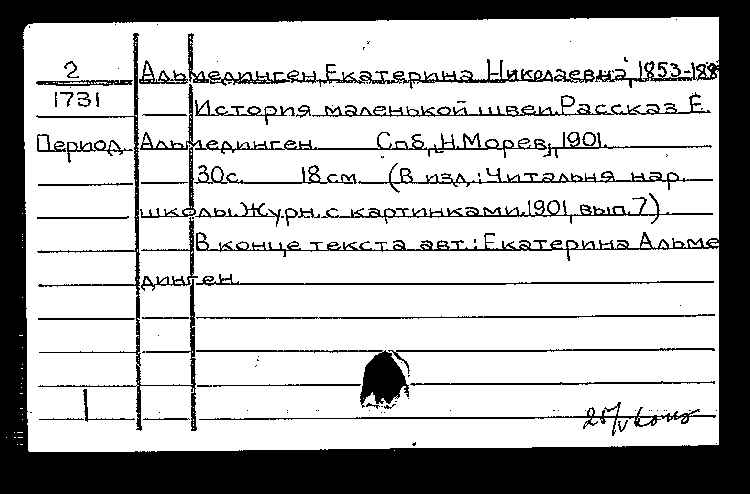 2 Альмединген, Екатерина Николаевна, 1853-188
1731 История маленькой швеи. Рассказ Е.
Период. Альмединген. Спб, "Н.Морев", 1901.
30с. 18 см. (В изд.: Читальня нар.
школы. Журн. с картинками. 1901, вып. 7).
В конце текста авт.: Екатерина Альме
динген.
1
25/V